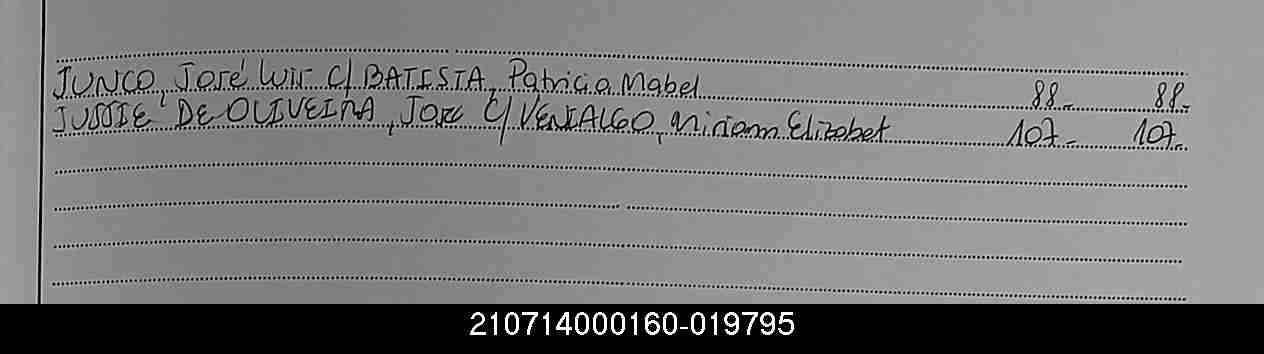 JUNCO, José Luis C/ BATISTA, Patricia Mabel 88.- 88.-
JUSSIE DE OLIVEIRA, José C/ VENIALGO, Miriam Elizabet 107.- 107.-
210714000160-019795